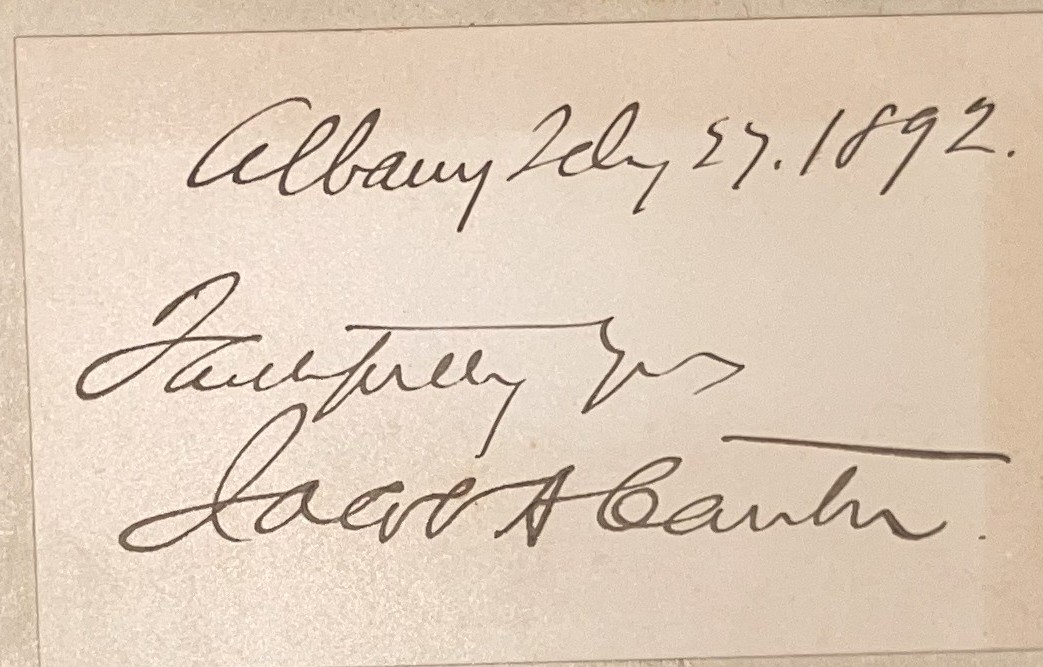 Albany Feby 27. 1892.
Faithfully Yrs
Jacob A Cantor.